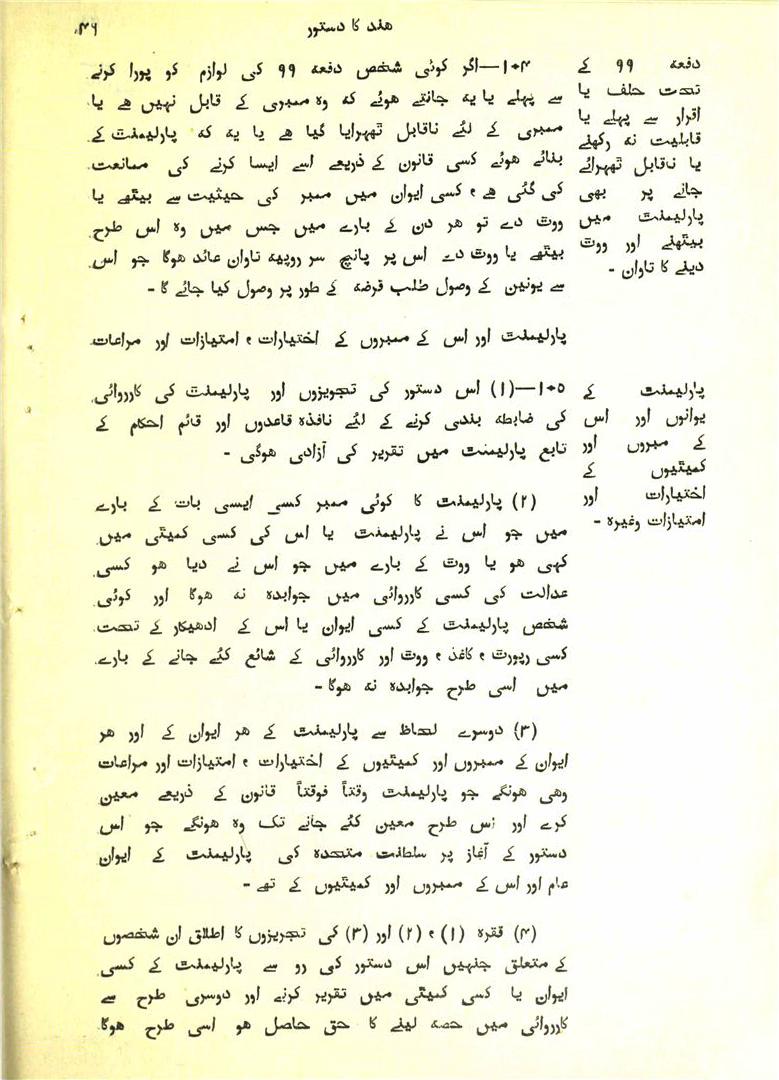 ھند کا دستور
۴۶
دفعہ ۹۹ کے
تحت حلف یا
اقرار سے پہلے یا
قابلیت نہ رکھنے
یا ناقابل ٹھہرائے
جانے پر بھی
پارلیمنٹ میں
بیٹھنے اور ووٹ
دینے کا تاوان -
۱۰۴—اگر کوئی شخص دفعہ ۹۹ کی لوازم کو پورا کرنے
سے پہلے یا یہ جانتے ہوئے کہ وہ ممبری کے قابل نہیں ھے یا
ممبری کے لئے ناقابل ٹھہرایا گیا ھے یا یہ کہ پارلیمنٹ کے
بنائے ھوئے کسی قانون کے ذریعے اسے ایسا کرنے کی ممانعت
کی گئی ھے ، کسی ایوان میں ممبر کی حیثیت سے بیٹھے یا
ووٹ دے تو ھر دن کے بارے میں جس میں وہ اس طرح
بیٹھے یا ووٹ دے اس پر پانچ سو روپیہ تاوان عائد ھوگا جو اس
سے یونین کے وصول طلب قرضہ کے طور پر وصول کیا جائے گا -
پارلیمنٹ اور اس کے ممبروں کے اختیارات ، امتیازات اور مراعات
پارلیمنٹ کے
یوانوں اور اس
کے ممبروں اور
کمیٹیوں کے
اختیارات اور
امتیازات وغیرہ -
۱۰۵—(۱) اس دستور کی تجویزوں اور پارلیمنٹ کی کارروائی
کی ضابطہ بندی کرنے کے لئے نافذہ قاعدوں اور قائم احکام کے
تابع پارلیمنٹ میں تقریر کی آزادی ھوگی -
(۲) پارلیمنٹ کا کوئی ممبر کسی ایسی بات کے بارے
میں جو اس نے پارلیمنٹ یا اس کی کسی کمیٹی میں
کہی ھو یا ووٹ کے بارے میں جو اس نے دیا ھو کسی
عدالت کی کسی کارروائی میں جوابدہ نہ ھوگا اور کوئی
شخص پارلیمنٹ کے کسی ایوان یا اس کے ادھیکار کے تحت
کسی رپورٹ ، کاغذ ، ووٹ اور کارروائی کے شائع کئے جانے کے بارے
میں اسی طرح جوابدہ نہ ھوگا -
(۳) دوسرے لحاظ سے پارلیمنٹ کے ھر ایوان کے اور ھر
ایوان کے ممبروں اور کمیٹیوں کے اختیارات ، امتیازات اور مراعات
وھی ھونگے جو پارلیمنٹ وقتاً فوقتاً قانون کے ذریعے معین
کرے اور اس طرح معین کئے جانے تک وہ ھونگے جو اس
دستور کے آغاز پر سلطنت متحدہ کی پارلیمنٹ کے ایوان
عام اور اس کے ممبروں اور کمیٹیوں کے تھے -
(۴) فقرہ (۱) ، (۲) اور (۳) کی تجویزوں کا اطلاق ان شخصوں
کے متعلق جنہیں اس دستور کی رو سے پارلیمنٹ کے کسی
ایوان یا کسی کمیٹی میں تقریر کرنے اور دوسری طرح سے
کارروائی میں حصہ لینے کا حق حاصل ھو اسی طرح ھوگا